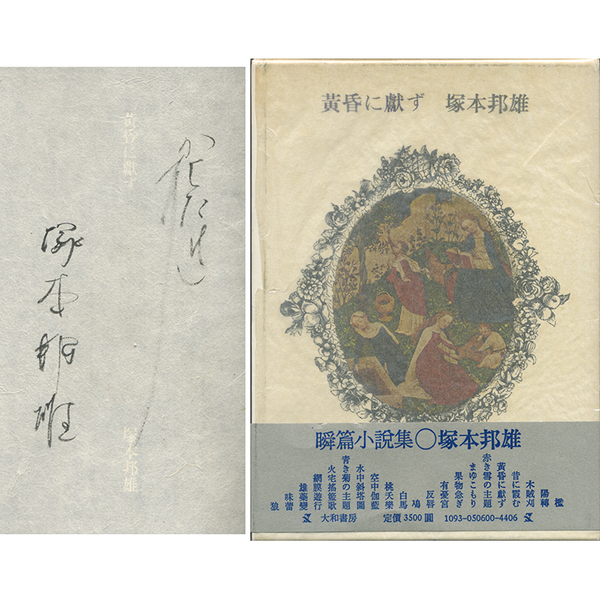 黄昏に獻ず
塚本邦雄
塚本邦雄
黄昏に獻ず 塚本邦雄
瞬篇小説集○塚本邦雄
檻
陽轉
木賊刈
昔に霞む
黄昏に獻ず
赤き雪の主題
まゆこもり
果物急ぎ
有憂宮
反唇
白馬
桃夭樂
空中伽藍
水中斜塔圖
青き菊の主題
火宅搖籃歌
網膜遊行
雄蘂變
味蕾
狼
大和書房 定價3500圓 1093-050600-4406